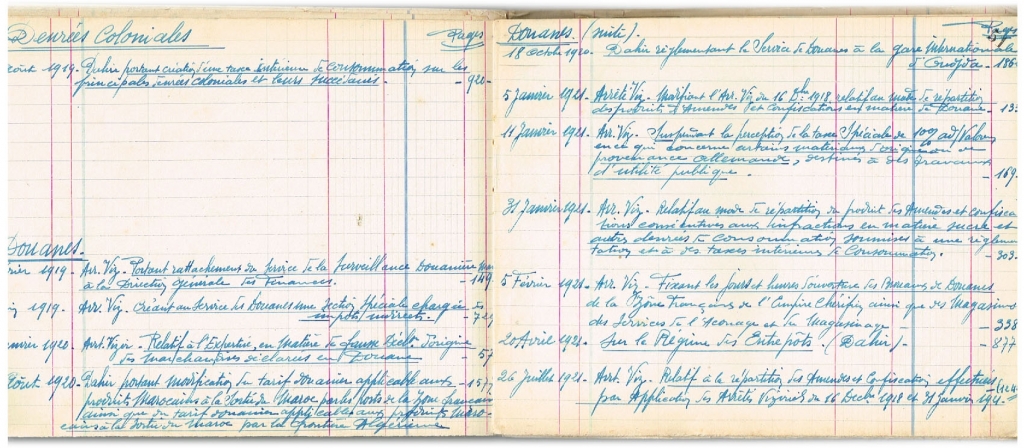 Denrées Coloniales
Pages
Août 1919. Dahir portant création d'une taxe intérieure de Consommation sur les
principales denrées coloniales et leurs succédanés. - 920-
Douanes.
vrier 1919. Arr. Viz. Portant rattachement du Service de la Surveillance Douanière
à la Direction Générale des Finances. - 149
1919. Arr. Viz. Créant au Service des Douanes une Section Spéciale chargée des
impôts indirects. - 729
anvier 1920. Arr. Vizir. Relatif à l'Expertise, en Matière de fausse décl. d'origine
des marchandises déclarées en Douane - 57
Août 1920. Dahir portant modification du tarif douanier applicable aux - 157
produits Marocains à la Sortie du Maroc par les Ports de la Zone française
ainsi que du tarif douanier applicable aux produits Maro-
cains à la sortie du Maroc par la frontière Algérienne
Douanes (suite).
Pages
18 Octobre 1920. Dahir réglementant le Service de Douanes à la gare internationale
d'Oudjda - 186
5 Janvier 1921. Arrêté Viz. Modifiant l'Arr. Viz du 16 Dbre 1918, relatif au mode de répartition
des produits d'Amendes et Confiscations en matière de Douane - 13
11 Janvier 1921. Arr. Viz. Suspendant la perception de la taxe Spéciale de 10% ad/Valorem
en ce qui concerne certains matériaux d'origine ou de
provenance allemande, destinés à des travaux
d'utilité publique. - 169
31 Janvier 1921. Arr. Viz. Relatif au mode de répartition du produit des Amendes et confisca-
tions consécutives aux infractions en matière sucre et
autres denrées de Consommation soumises à une réglemen
tation et à des taxes intérieures de Consommation. - 303
5 Février 1921. Arr. Viz. Fixant les jours et heures d'ouverture des Bureaux de Douanes
de la Zone française de l'Empire Chérifien ainsi que des Magasins
des Services de l'Aconage et du Magasinage - 338
20 Avril 1921. Sur le Régime des Entrepôts (Dahir) - 877
26 Juillet 1921. Arrt. Viz. Relatif à la répartition des Amendes et Confiscations effectuées
par Application des Arrêtés Viziriels du 16 Decbre 1918 et 31 Janvier 192